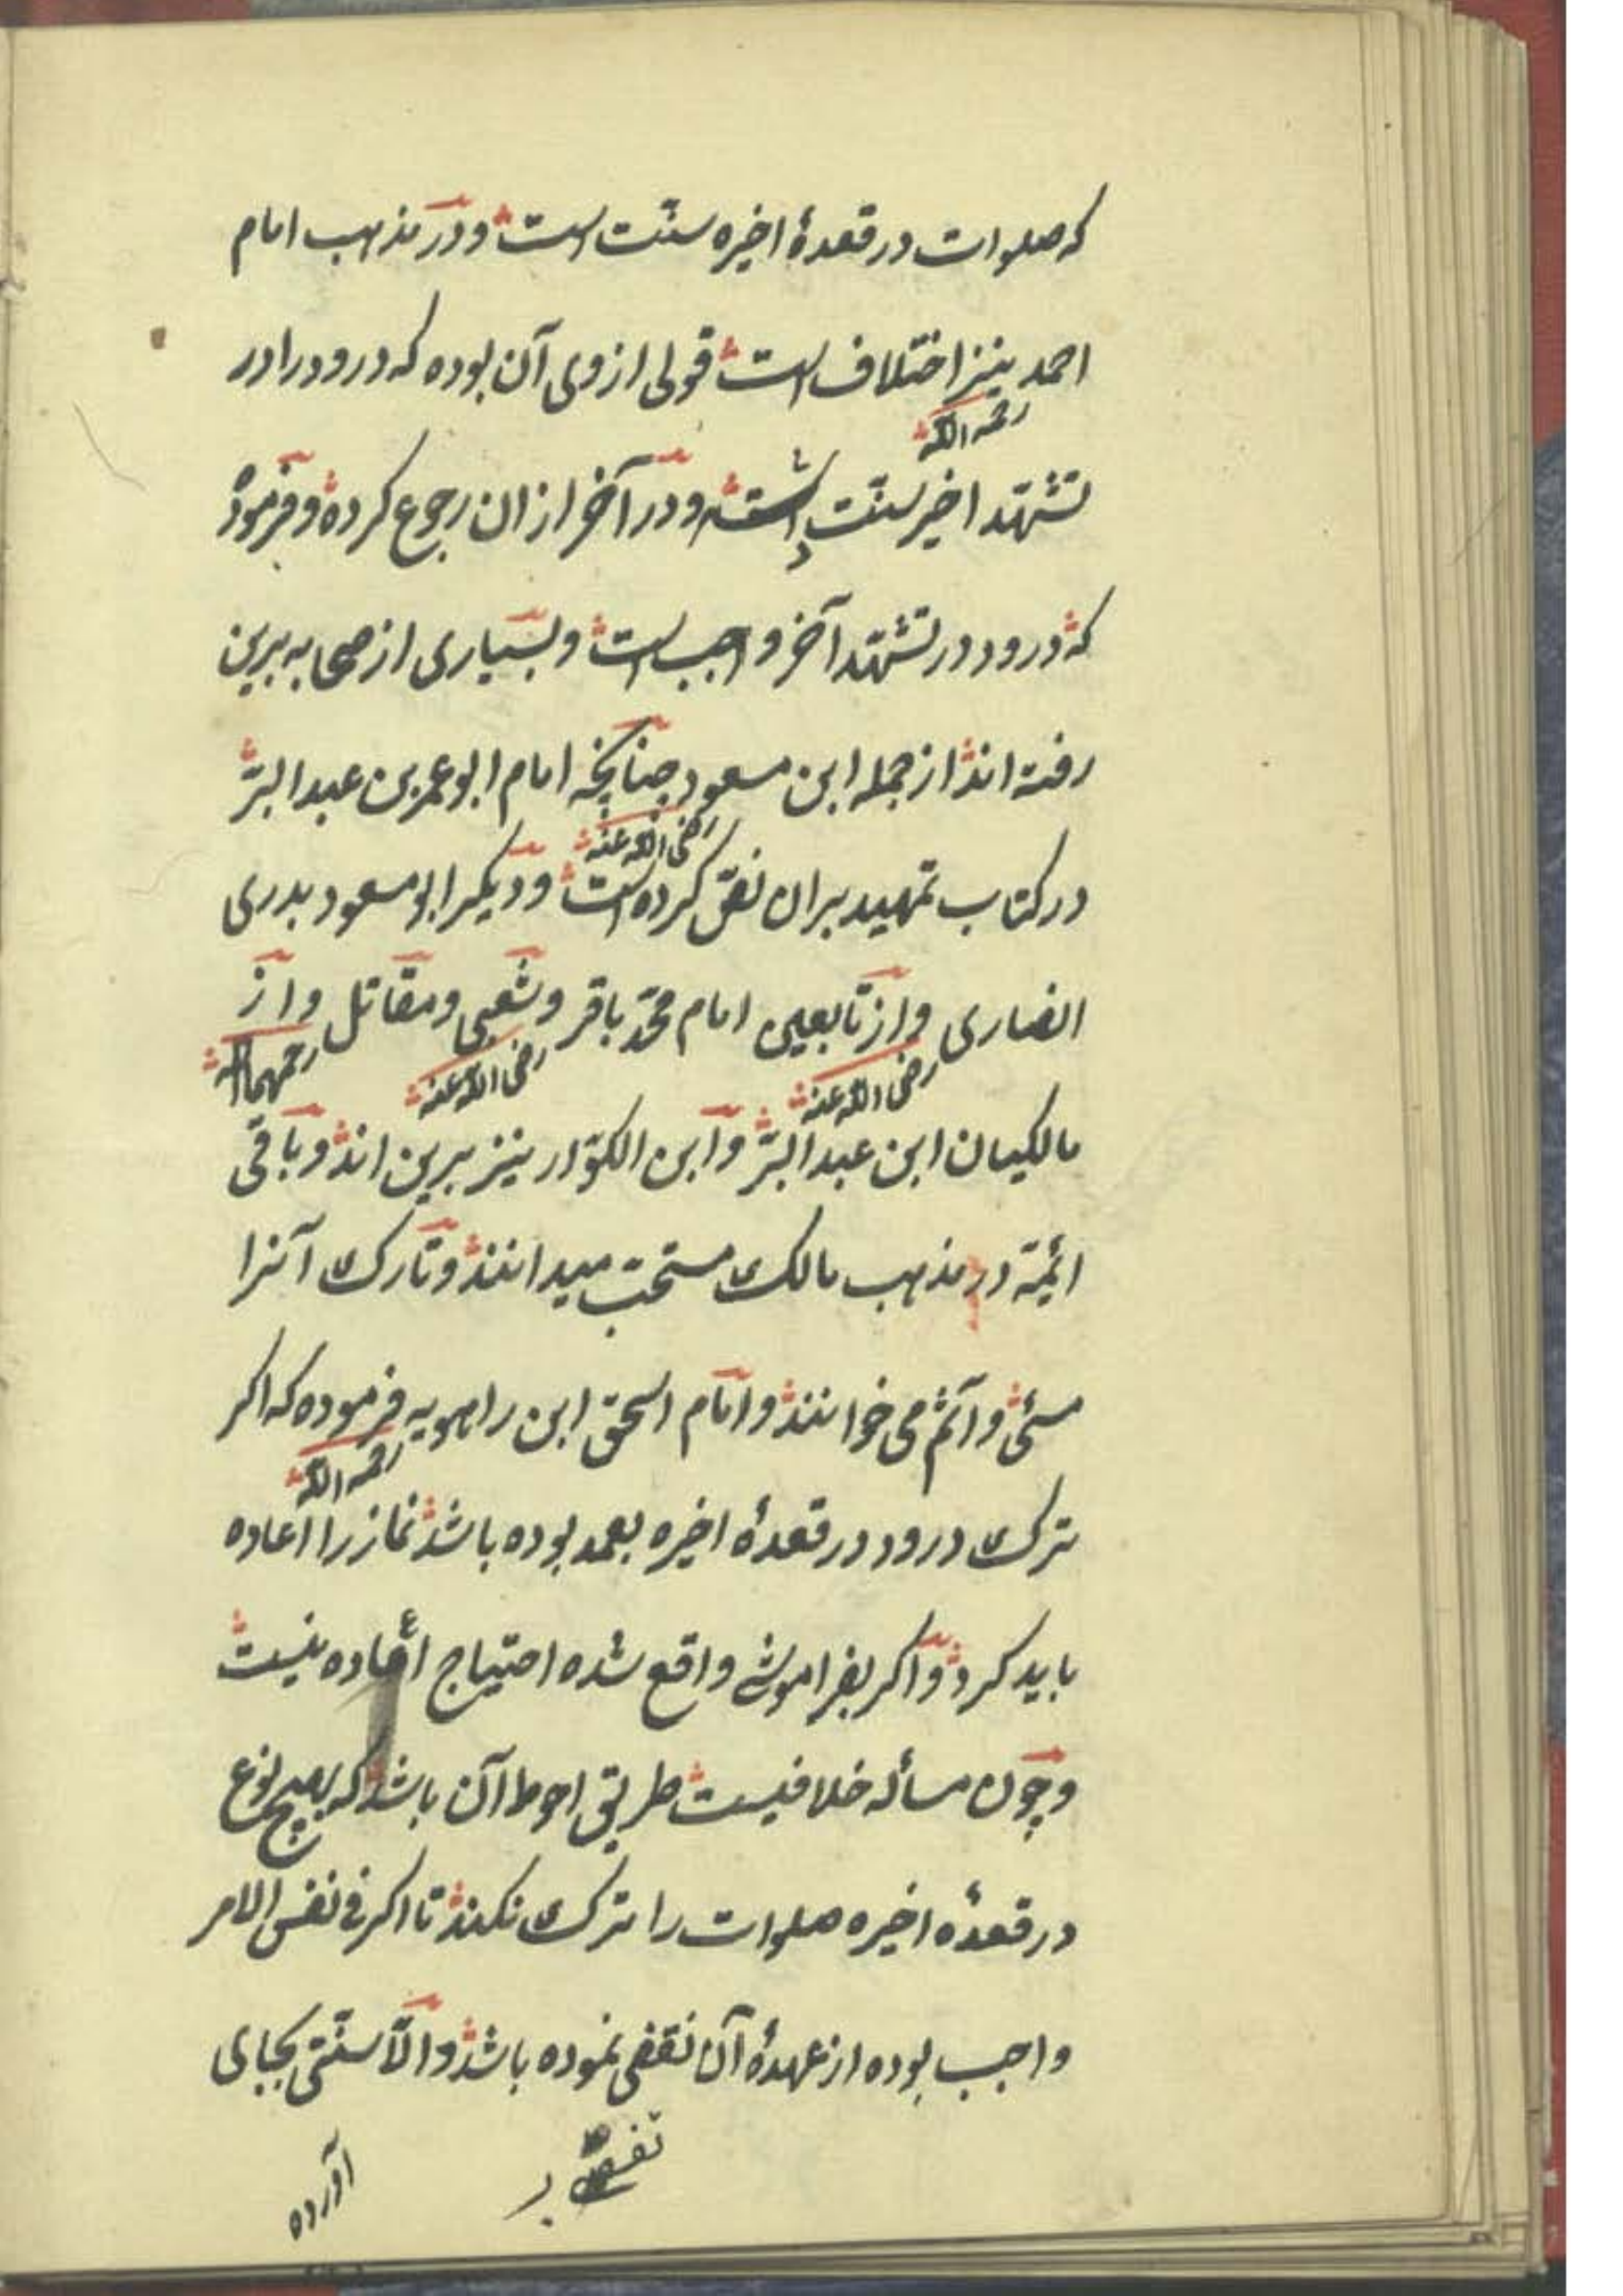 که صلوات در قعدهٔ اخیره سنّت است و در مذهب امام
احمد نیز اختلاف است قولی از وی آن بوده که درود را در
رحمه الله
تشهّد اخیر سنّت داشته و در آخر از ان رجوع کرده و فرموده
که درود در تشهّد آخر واجب است و بسیاری از صحابه برین
رفته اند از جمله ابن مسعود چنانچه امام ابو عمر بن عبد البرّ
رضی الله عنه
در کتاب تمهید بران نصّ کرده است و دیکر ابو مسعود بدری
انصاری و از تابعین امام محمّد باقر و شعبی و مقاتل و از
رضی الله عنه رضی الله عنه رحمهما الله
مالکیان ابن عبد البرّ و ابن الکوّار نیز برین اند و باقی
ائمّة در مذهب مالک مستحبّ میدانند و تارک آنرا
مسئ و آثم می خوانند و امام اسحق ابن راهویه فرموده که اکر
رحمه الله
ترک درود در قعدهٔ اخیره بعمد بوده باشد نماز را اعاده
باید کرد و اکر بفراموشی واقع شده احتیاج اعاده نیست
و چون مسأله خلافیست طریق احوط آن باشد که بهیچ نوع
در قعدهٔ اخیره صلوات را ترک نکنند تا اکر فی نفس الامر
واجب بوده از عهدهٔ آن تفصّی نموده باشد و الّا سنّتی بجای
آورده